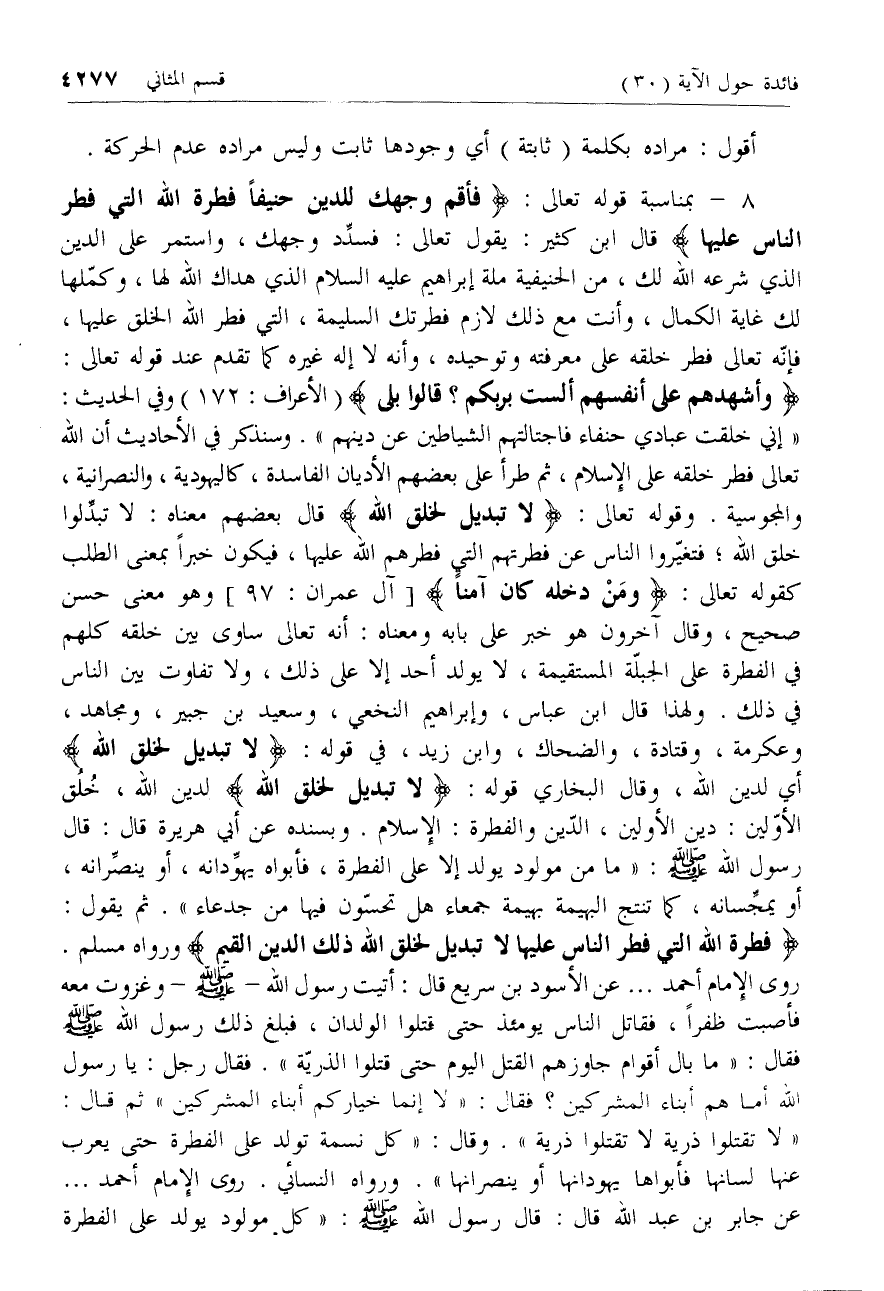 فائدة حول الآية ( ٣٠ ) قسم المثاني ٤٢٧٧
أقول : مراده بكلمة ( ثابتة ) أي وجودها ثابت وليس مراده عدم الحركة .
٨ - بمناسبة قوله تعالى : ﴿ فأقم وجهك للدين حنيفاً فطرة الله التي فطر
الناس عليها ﴾ قال ابن كثير : يقول تعالى : فسدِّد وجهك ، واستمر على الدين
الذي شرعه الله لك ، من الحنيفية ملة إبراهيم عليه السلام الذي هداك الله لها ، وكمّلها
لك غاية الكمال ، وأنت مع ذلك لازم فطرتك السليمة ، التي فطر الله الخلق عليها ،
فإنّه تعالى فطر خلقه على معرفته وتوحيده ، وأنه لا إله غيره كما تقدم عند قوله تعالى :
﴿ وأشهدهم على أنفسهم ألست بربكم ؟ قالوا بلى ﴾ ( الأعراف : ١٧٢ ) وفي الحديث :
« إني خلقت عبادي حنفاء فاجتالتهم الشياطين عن دينهم » . وسنذكر في الأحاديث أن الله
تعالى فطر خلقه على الإسلام ، ثم طرأ على بعضهم الأديان الفاسدة ، كاليهودية ، والنصرانية ،
والمجوسية . وقوله تعالى : ﴿ لا تبديل لخلق الله ﴾ قال بعضهم معناه : لا تبدِّلوا
خلق الله ؛ فتغيّروا الناس عن فطرتهم التي فطرهم الله عليها ، فيكون خبراً بمعنى الطلب
كقوله تعالى : ﴿ ومَنْ دخله كان آمناً ﴾ [ آل عمران : ٩٧ ] وهو معنى حسن
صحيح ، وقال آخرون هو خبر على بابه ومعناه : أنه تعالى ساوى بين خلقه كلهم
في الفطرة على الجبلّة المستقيمة ، لا يولد أحد إلا على ذلك ، ولا تفاوت بين الناس
في ذلك . ولهذا قال ابن عباس ، وإبراهيم النخعي ، وسعيد بن جبير ، ومجاهد ،
وعكرمة ، وقتادة ، والضحاك ، وابن زيد ، في قوله : ﴿ لا تبديل لخلق الله ﴾
أي لدين الله ، وقال البخاري قوله : ﴿ لا تبديل لخلق الله ﴾ لدين الله ، خُلُق
الأوّلين : دين الأولين ، الدّين والفطرة : الإسلام . وبسنده عن أبي هريرة قال : قال
رسول الله ﷺ : « ما من مولود يولد إلا على الفطرة ، فأبواه يهوِّدانه ، أو ينصِّرانه ،
أو يمجِّسانه ، كما تنتج البهيمة بهيمة جمعاء هل تحسّون فيها من جدعاء » . ثم يقول :
﴿ فطرة الله التي فطر الناس عليها لا تبديل لخلق الله ذلك الدين القيم ﴾ ورواه مسلم .
روى الإمام أحمد ... عن الأسود بن سريع قال : أتيت رسول الله - ﷺ - وغزوت معه
فأصبت ظفراً ، فقاتل الناس يومئذ حتى قتلوا الولدان ، فبلغ ذلك رسول الله ﷺ
فقال : « ما بال أقوام جاوزهم القتل اليوم حتى قتلوا الذريّة » . فقال رجل : يا رسول
الله أما هم أبناء المشركين ؟ فقال : « لا إنما خياركم أبناء المشركين » ثم قال :
« لا تقتلوا ذرية لا تقتلوا ذرية » . وقال : « كل نسمة تولد على الفطرة حتى يعرب
عنها لسانها فأبواها يهودانها أو ينصرانها » . ورواه النسائي . روى الإمام أحمد ...
عن جابر بن عبد الله قال : قال رسول الله ﷺ : « كل مولود يولد على الفطرة